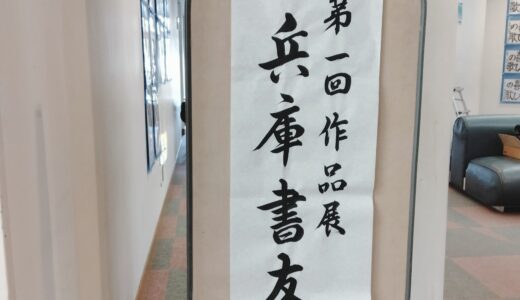 第一回作品展
兵庫書友